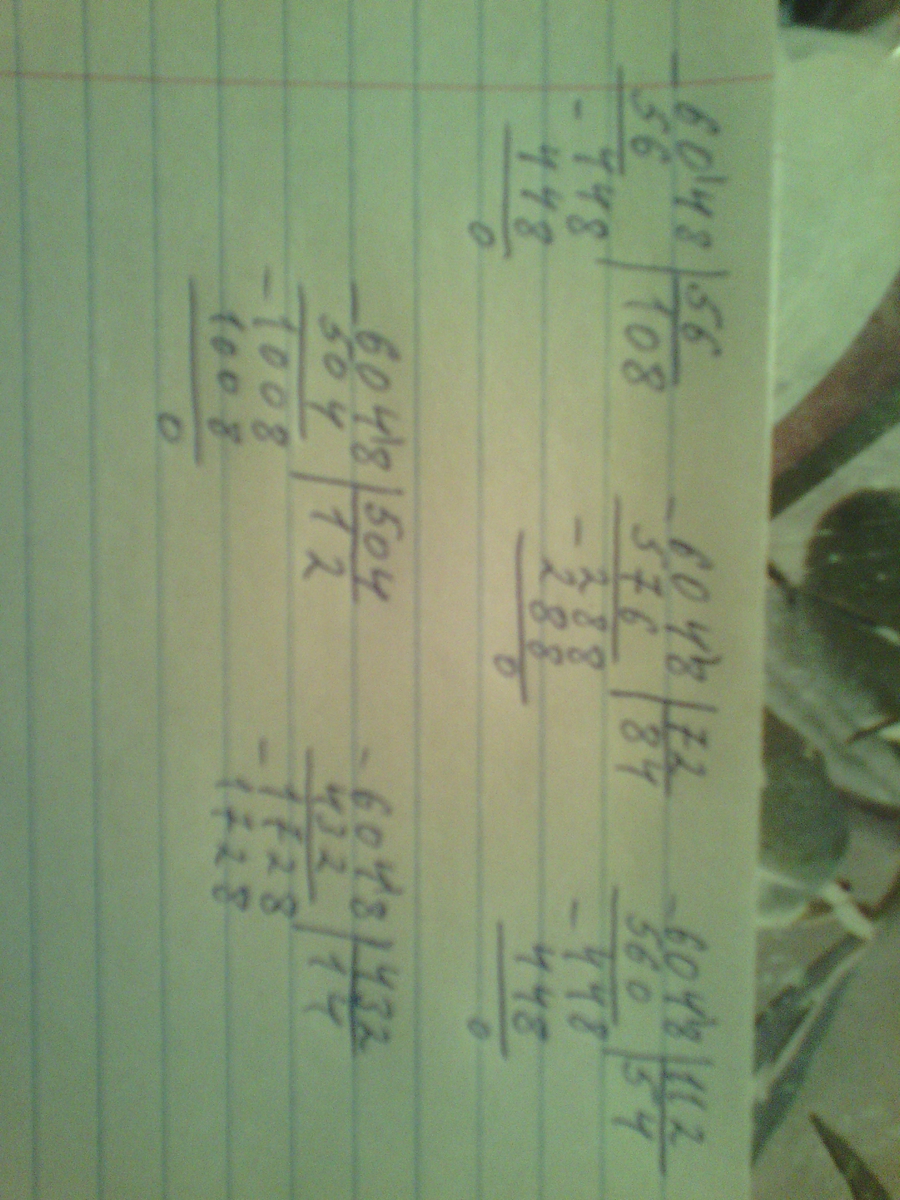 - 6048 | 56
56 | 108
- 448
448
0
- 6048 | 72
576 | 84
- 288
288
0
- 6048 | 112
560 | 54
- 448
448
0
- 6048 | 504
504 | 12
- 1008
1008
0
- 6048 | 432
432 | 14
- 1728
1728